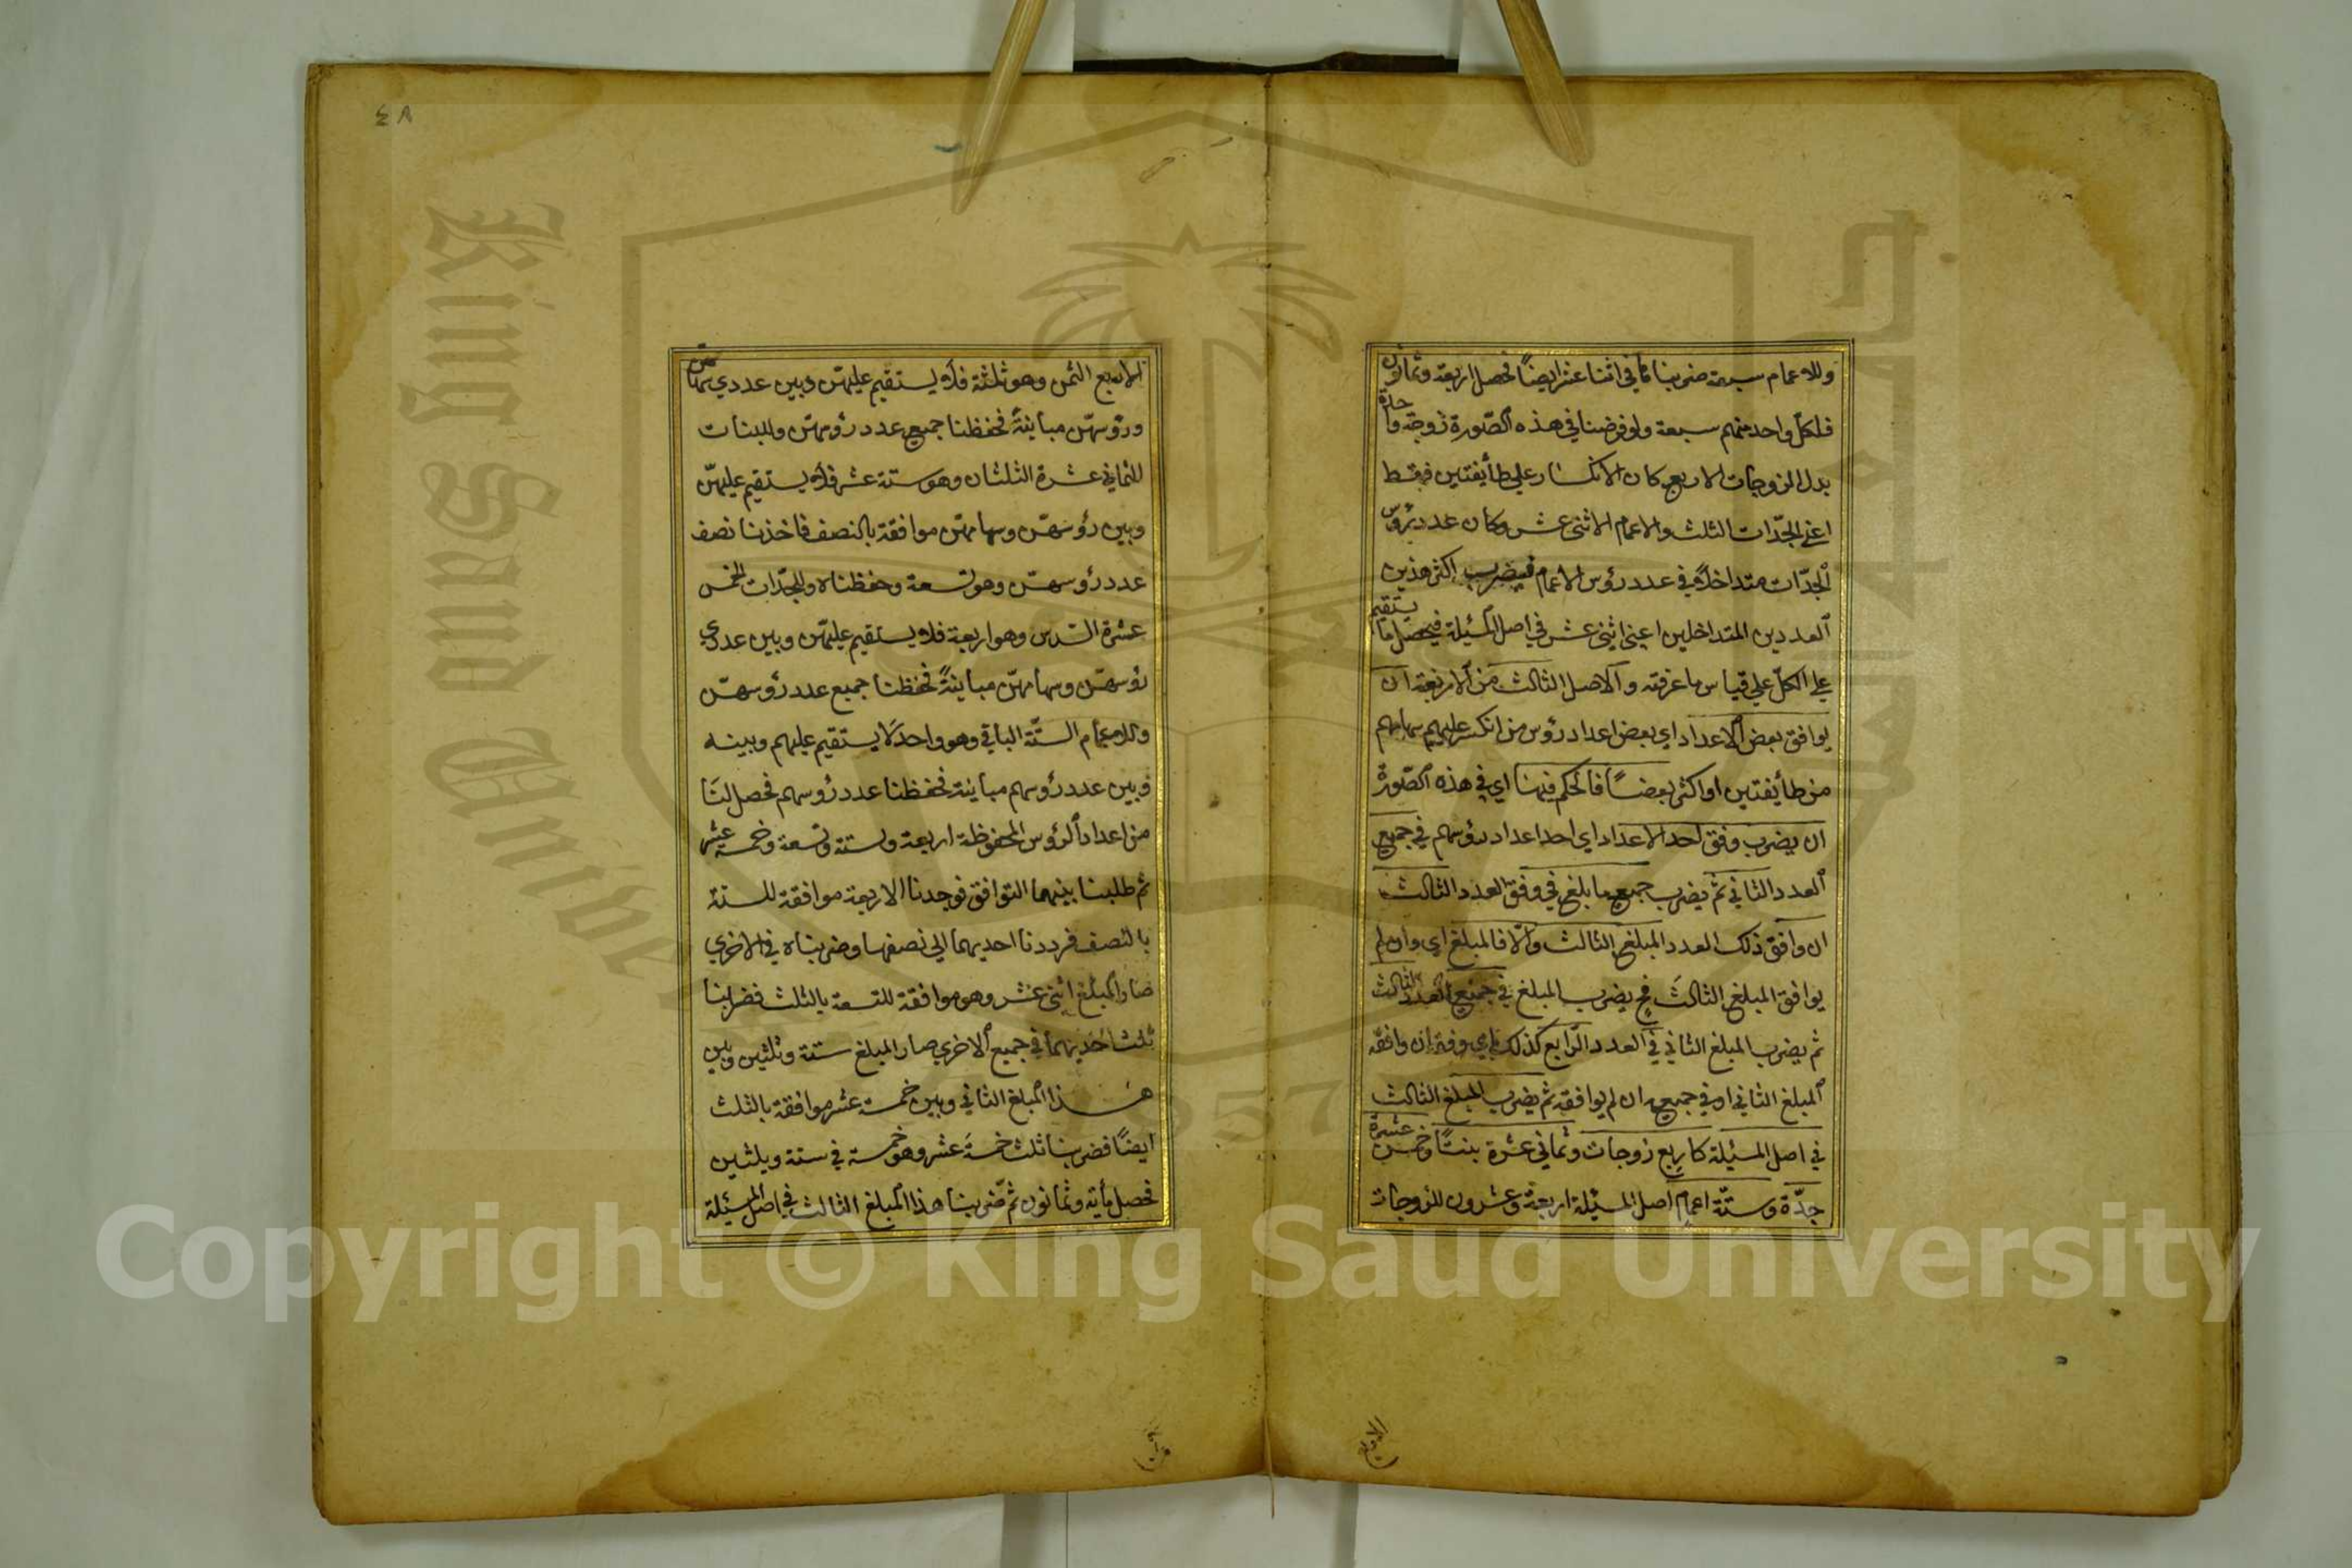 وللاعمام سبعة ضربناها في اثنا عشر ايضًا فحصل اربعة وثمانون
فلكل واحد منهم سبعة ولو فرضنا في هذه الصّورة زوجة واحدة
بدل الزوجات الاربع كان الانكسار علي طايفتين فقط
اعني الجدّات الثلث والاعمام الاثني عشر وكان عدد رؤس
الجدّات متداخلا في عدد رؤس الاعمام فيضرب اكثر هذين
العددين المتداخلين اعني اثني عشر في اصل المسئلة فيحصل ما يستقيم
علي الكلّ علي قياس ما عرفته والاصل الثالث من الاربعة ان
يوافق بعض الاعداد اي بعض اعداد رؤس من انكسر عليهم سهامهم
من طايفتين او اكثر بعضًا فالحكم فيها اي في هذه الصّورة
ان يضرب وفق احد الاعداد اي احد اعداد رؤسهم في جميع
العدد الثاني ثم يضرب جميع ما بلغ في وفق العدد الثالث
ان وافق ذلك العدد المبلغ الثالث والّا فالمبلغ اي وان لم
يوافق المبلغ الثالث فح يضرب المبلغ في جميع العدد الثالث
ثم يضرب المبلغ الثاني في العدد الرّابع كذلك اي وفقه ان وافقه
المبلغ الثاني او في جميعه ان لم يوافقه ثم يضرب المبلغ الثالث
في اصل المسئلة كاربع زوجات وثماني عشرة بنتًا وخمس عشرة
جدّة وستّة اعمام اصل المسئلة اربعة وعشرون للزوجات
الاربع
٤٨
الاربع الثمن وهو ثلثة فلا يستقيم عليهنّ وبين عددي سهامهنّ
ورؤسهنّ مباينةً فحفظنا جميع عدد رؤسهنّ وللبنات
الثماني عشرة الثلثان وهو ستة عشر فلا يستقيم عليهنّ
وبين رؤسهنّ وسهامهنّ موافقة بالنصف فاخذنا نصف
عدد رؤسهنّ وهو تسعة وحفظناه وللجدّات الخمس
عشرة السّدس وهو اربعة فلا يستقيم عليهنّ وبين عددي
رؤسهنّ وسهامهنّ مباينةً فحفظنا جميع عدد رؤسهنّ
وللاعمام الستّة الباقي وهو واحد لا يستقيم عليهم وبينه
وبين عدد رؤسهم مباينة فحفظنا عدد رؤسهم فحصل لنا
من اعداد الرؤس المحفوظة اربعة وستة وتسعة وخمسة عشر
ثم طلبنا بينهما التوافق فوجدنا الاربعة موافقة للستة
بالنصف فرددنا احديهما الي نصفها وضربناه في الاخري
صار المبلغ اثني عشر وهو موافقة للتسعة بالثلث فضربنا
ثلث احديهما في جميع الاخري صار المبلغ ستة وثلثين وبين
هذا المبلغ الثاني وبين خمسة عشر موافقة بالثلث
ايضًا فضربنا ثلث خمسة عشر وهو خمسة في ستة وثلثين
فحصل مأية وثمانون ثم ضربنا هذا المبلغ الثالث في اصل المسئلة
King Saud University
1957
Copyright © King Saud University